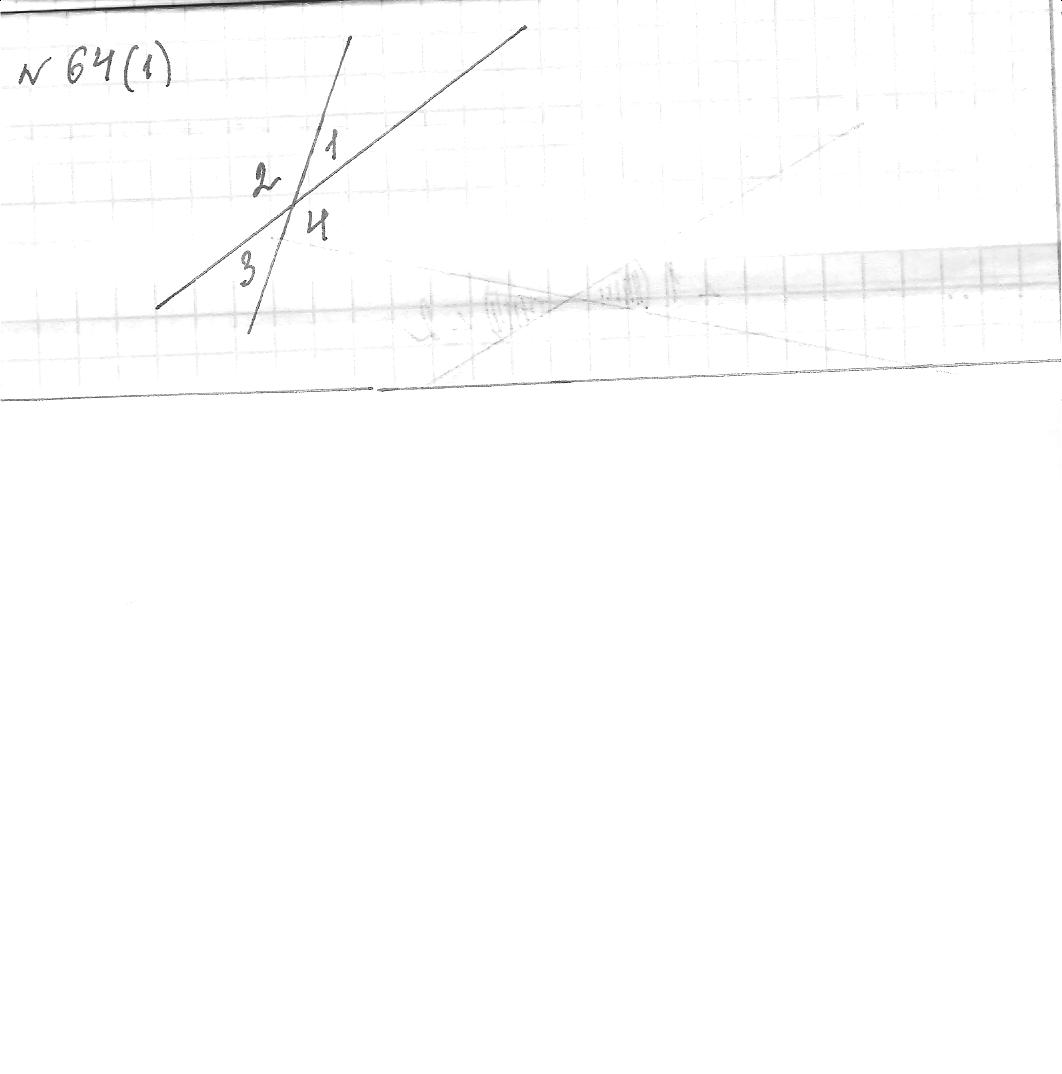 № 64(1)
1
2
4
3